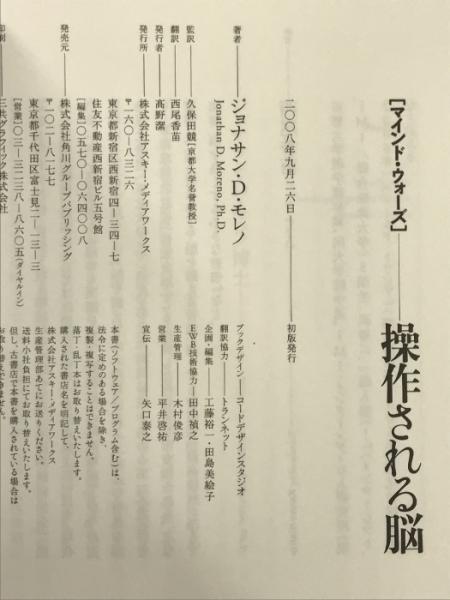 ［マインド・ウォーズ］――操作される脳
二〇〇八年九月二六日――初版発行
著者――ジョナサン・D・モレノ
Jonathan D. Moreno, Ph.D.
監訳――久保田競［京都大学名誉教授］
翻訳――西尾香苗
発行者――高野潔
発行所――株式会社アスキー・メディアワークス
〒一六〇-八三二六
東京都新宿区西新宿四-三四-七
住友不動産西新宿ビル五号館
［編集］〇五七〇-〇六四〇〇八
発売元――株式会社角川グループパブリッシング
〒一〇二-八一七七
東京都千代田区富士見二-一三-三
［営業］〇三-三二三八-八六〇五（ダイヤルイン）
印刷――三共グラフィック株式会社
ブックデザイン――コードデザインスタジオ
翻訳協力――トランネット
企画・編集――工藤裕一・田島美絵子
EWB技術協力――田中禎之
生産管理――木村俊彦
営業――平井啓祐
宣伝――矢口泰之
本書（ソフトウェア／プログラム含む）は、
法令に定めのある場合を除き、
複製・複写することはできません。
落丁・乱丁本はお取り替えいたします。
購入された書店名を明記して、
株式会社アスキー・メディアワークス
生産管理部あてにお送りください。
送料小社負担にてお取り替えいたします。
但し、古書店で本書を購入されている場合は
お取り替えできません。